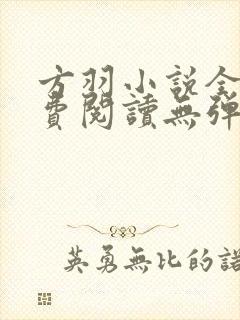 方羽小説全
費閱讀無彈
英勇無比的諾